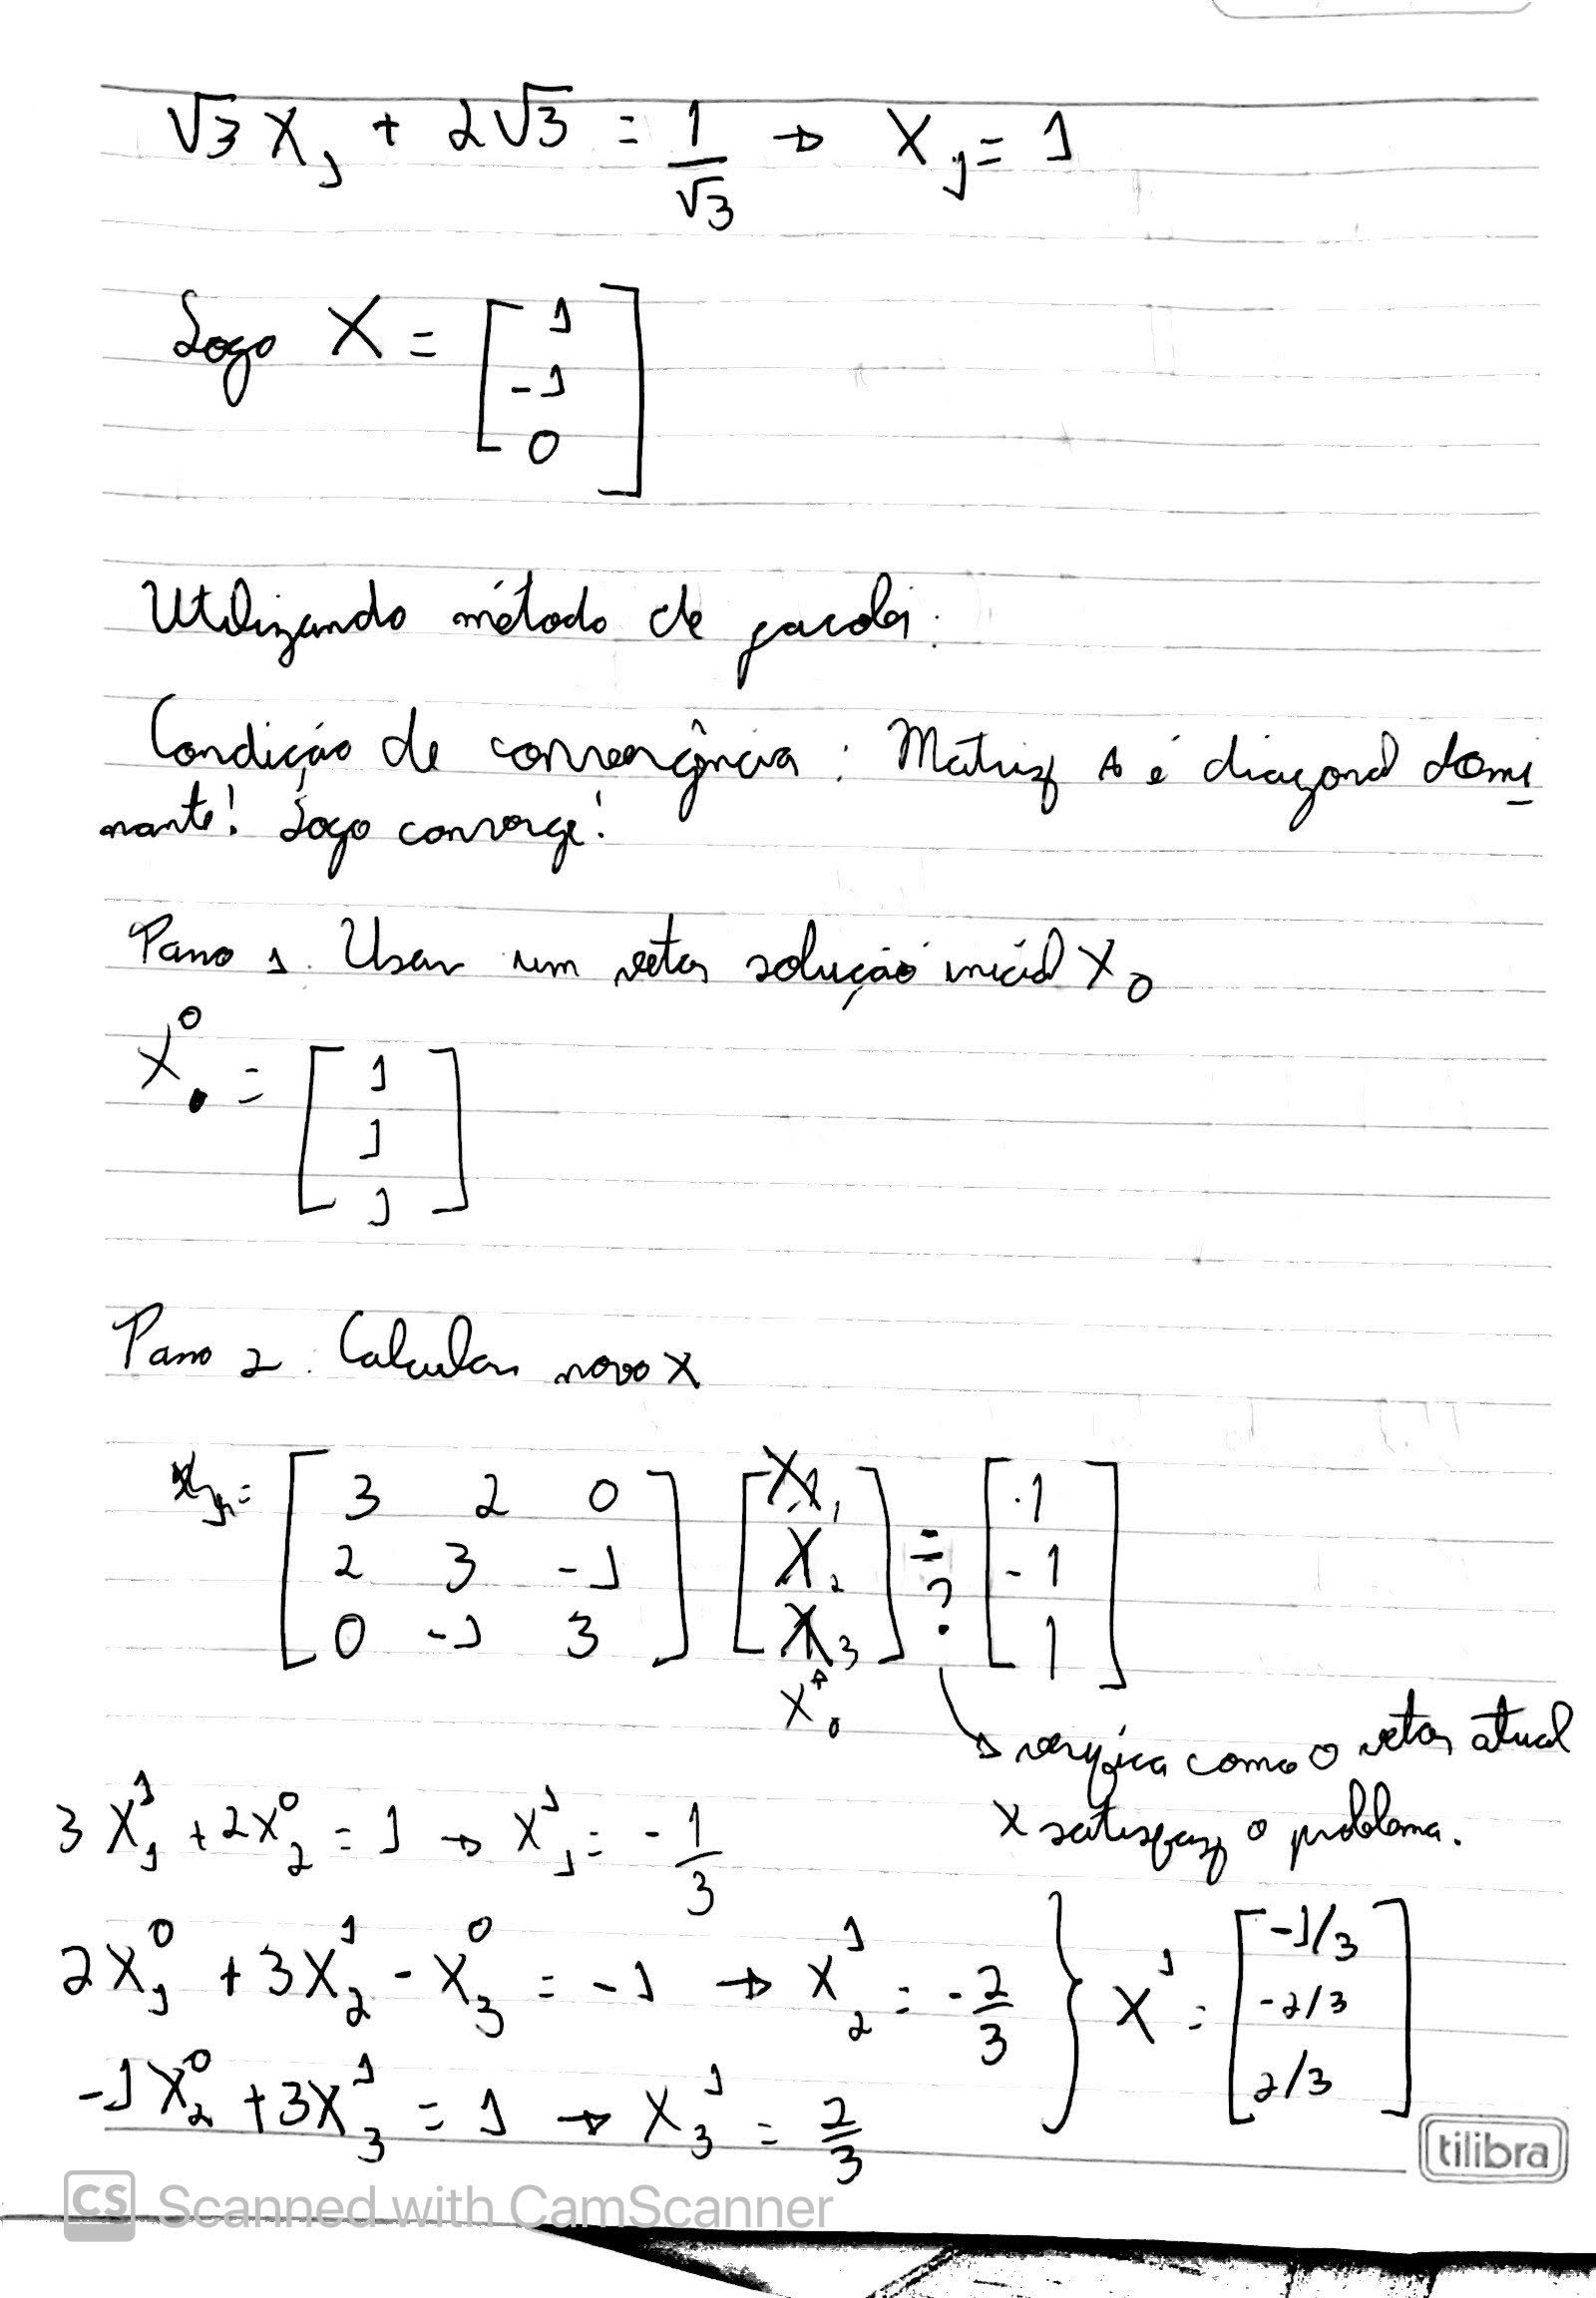 √3 X₁ + 2√3 = 1/√3 → X₁ = 1
Logo X = [1
-1
0]
Utilizando método de jacobi.
Condição de convergência : Matriz A é diagonal domi
nante! Logo converge!
Passo 1. Usar um vetor solução inicial X₀
X⁰ = [1
1
1]
Passo 2. Calcular novo X
[3 2 0] [X₁] = [1]
[2 3 -1] [X₂] ? [-1]
[0 -1 3] [X₃] [1]
X⁰
→ verifica como o vetor atual
X satisfaz o problema.
3X₁¹ + 2X₂⁰ = 1 → X₁¹ = -1/3
2X₁⁰ + 3X₂¹ - X₃⁰ = -1 → X₂¹ = -2/3 } X¹ = [-1/3
-2/3
2/3]
-1X₂⁰ + 3X₃¹ = 1 → X₃¹ = 2/3
tilibra
CS Scanned with CamScanner